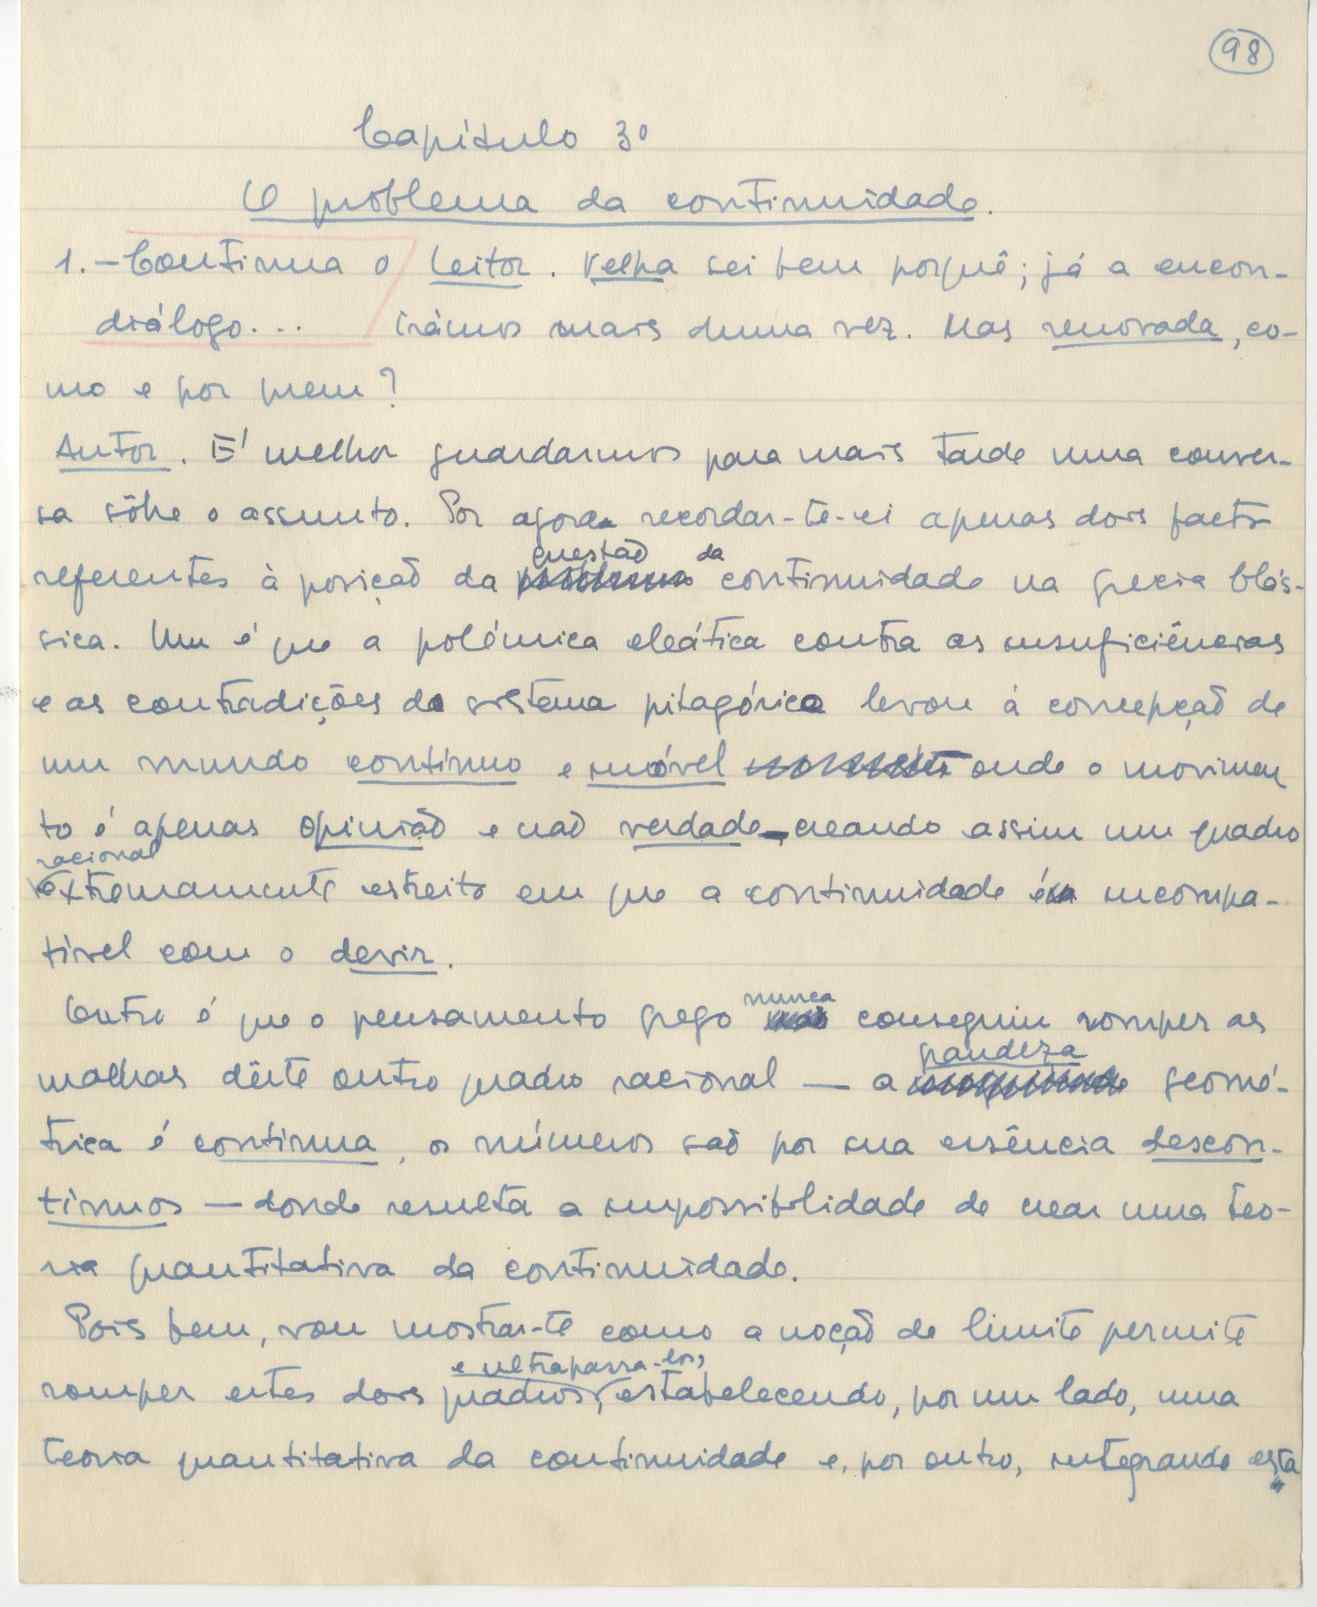 98
Capítulo 3º
O problema da continuidade.
1. – Continua o Leitor. Velha sei bem porquê; já a encon-
diálogo... trámos mais duma vez. Mas renovada, co-
mo e por quem?
Autor. É melhor guardarmos para mais tarde uma conver-
sa sôbre o assunto. Por agora recordar-te-ei apenas dois factos
questão da
referentes à posição da continuidade na Grecia Clás-
sica. Um é que a polémica eleática contra as insuficiências
e as contradições do sistema pitagórico levou à concepção de
um mundo contínuo e imóvel onde o movimen
to é apenas opinião e não verdade, creando assim um quadro
racional
extremamente estreito em que a continuidade é incompa-
tível com o devir.
nunca
Outro é que o pensamento grego conseguiu romper as
grandeza
malhas dêste outro quadro racional — a geomé-
trica é contínua, os números são por sua essência descon-
tínuos — donde resulta a impossibilidade de crear uma teo-
ria quantitativa da continuidade.
Pois bem, vou mostrar-te como a noção de limite permite
e ultrapassa-los,
romper estes dois quadros, estabelecendo, por um lado, uma
teoria quantitativa da continuidade e, por outro, integrando esta